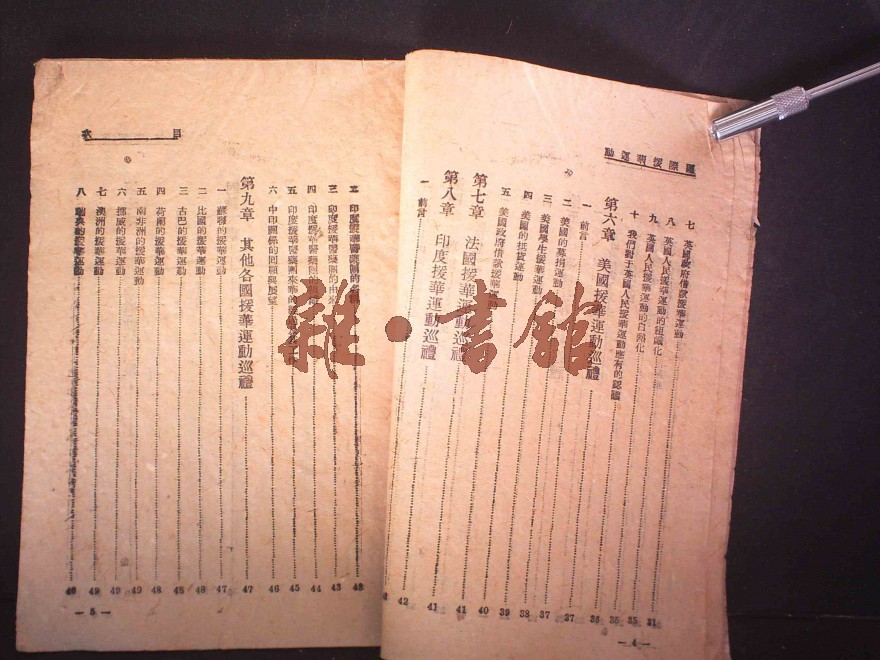 國際援華運動
七 英國政府借款援華運動 31
八 英國人民援華運動的組織化 35
九 英國人民援華運動的白熱化 35
十 我們對于英國人民援華運動應有的認識 36
第六章 美國援華運動巡禮
一 前言 37
二 美國的募捐運動 37
三 美國學生援華運動 38
四 美國的抵貨運動 39
五 美國政府借款援華運動 40
第七章 法國援華運動巡禮 41
第八章 印度援華運動巡禮 41
一 前言 42
— 4 —
目 次
二 印度援華醫藥團的 43
三 印度援華醫藥團的由來 43
四 印度援華醫藥團的 44
五 印度援華醫藥團來華的 45
六 中印關係的回顧與展望 46
第九章 其他各國援華運動巡禮 47
一 蘇聯的援華運動 47
二 比國的援華運動 48
三 古巴的援華運動 48
四 荷蘭的援華運動 48
五 南非洲的援華運動 49
六 挪威的援華運動 49
七 澳洲的援華運動 49
八 瑞典的援華運動
— 5 —
雜·書館